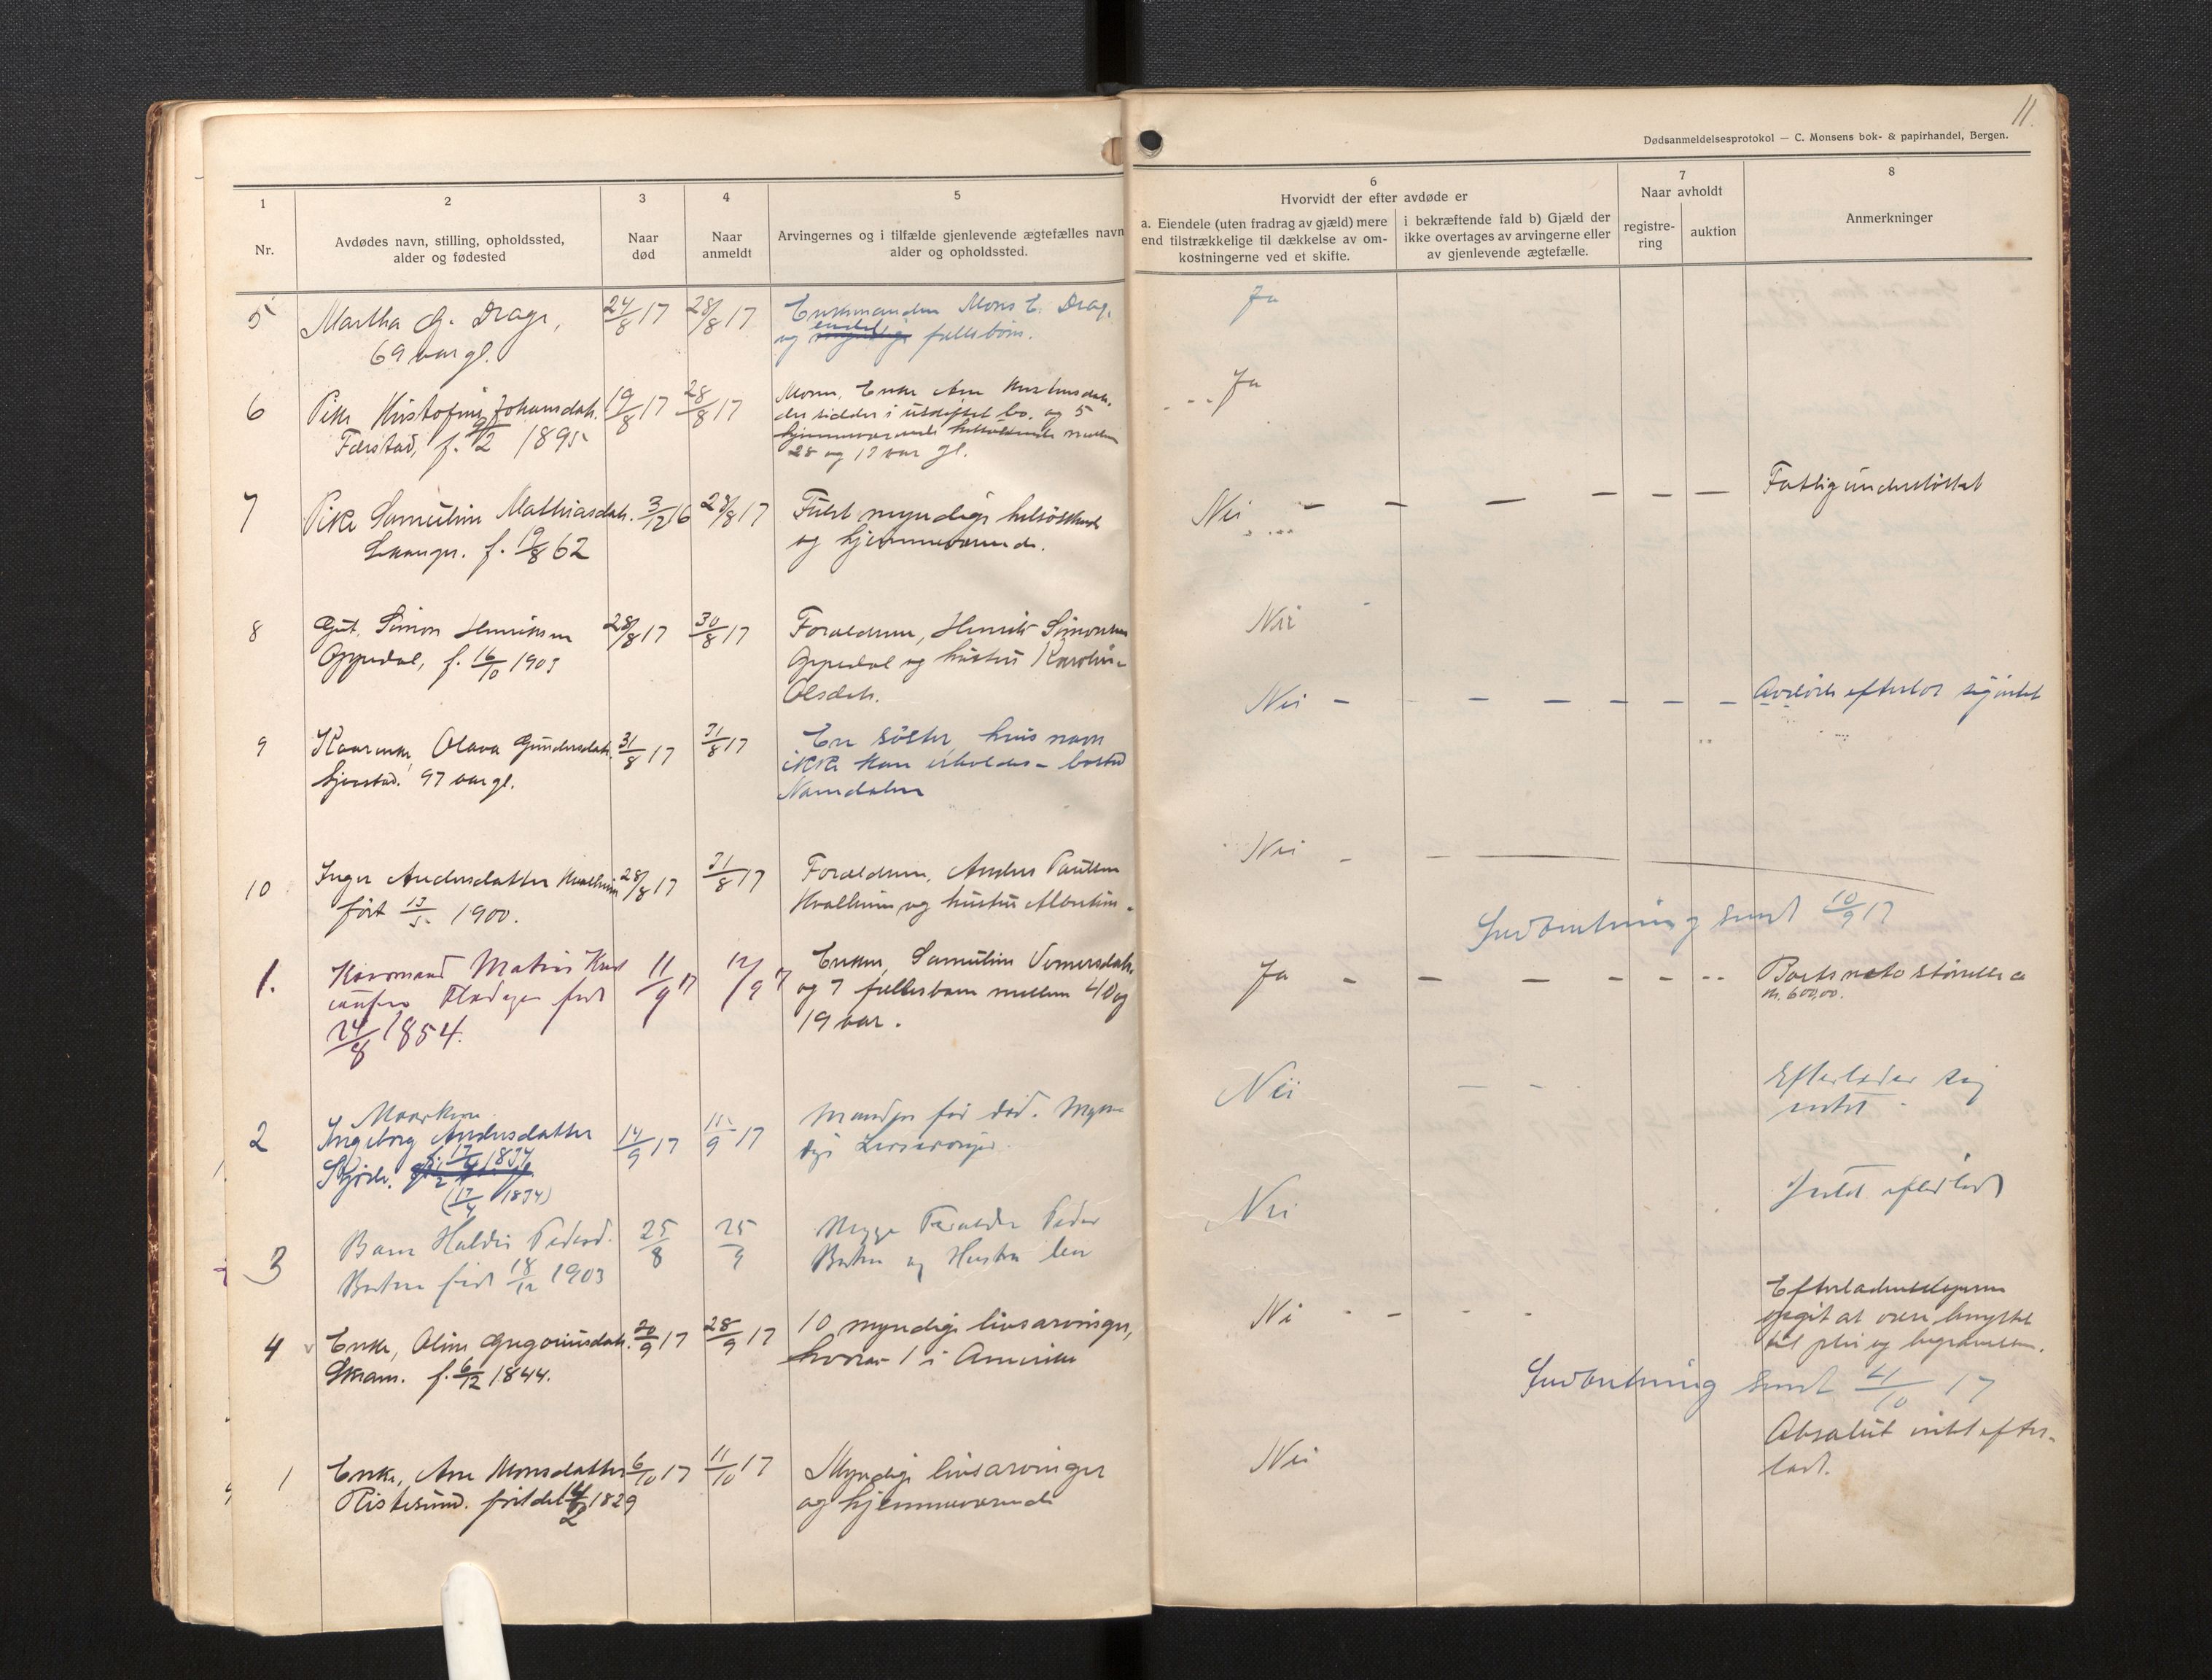 11.
Dødsanmeldelsesprotokol — C. Monsens bok- & papirhandel, Bergen.
1
Nr.
2
Avdødes navn, stilling, opholdssted,
alder og fødested
3
Naar
død
4
Naar
anmeldt
5
Arvingernes og i tilfælde gjenlevende ægtefælles navn
alder og opholdssted.
6
Hvorvidt der efter avdøde er
a. Eiendele (uten fradrag av gjæld) mere
end tilstrækkelige til dækkelse av om-
kostningerne ved et skifte.
i bekræftende fald b) Gjæld der
ikke overtages av arvingerne eller
av gjenlevende ægtefælle.
7
Naar avholdt
registre-
ring
auktion
8
Anmerkninger
5 Martha G. Drage, 24/8 17 28/8 17 Enkemanden Mons E. Drage Ja
69 aar gl. og fællesbörn.
6 Pike Kristofine Johansdatr. 19/8 17 28/8 17 Moren, Enke Ane Ja
Færstad, f. 9/2 1895 der sidder i uskiftet bo. og 5
hjemmeværende helsöskende mellem
28 og 17 aar gl.
7 Pike Samuline Mathiasdatr. 3/12 16 28/8 17 Fuldt myndige helsöskende Nei — — — — — — Fattigunderstöttet
f. 19/8 62 og hjemmeværende.
8 Gut, Simon Henriksen 28/8 17 30/8 17 Forældrene, Henrik Simonsen Nei
Oppedal, f. 16/10 1903 Oppedal og hustru Karoline
Olsdatr.
9 Olava Gundersdatr. 31/8 17 31/8 17 En söster, hvis navn Nei — — — — — — — efterlot sig intet
97 aar gl. ikke kan erholdes – bosted
Namdalen
10 Inger Andersdatter Kvalheim 28/8 17 31/8 17 Forældrene, Anders Paulsen Nei — —
født 13/5 1900. Kvalheim og hustru Albertine.
Indberetning sendt 10/9 17
1. Kaarmand Matias 11/9 17 12/9 17 Enken, Samuline Ja — — — — — — Boets neto störrelse ca
født og 7 fællesbarn mellem 40 og kr. 600,00.
24/8 1854. 19 aar.
2 Kaarkone Nei — — Efterlader sig
Ingeborg Andersdatter 14/9 17 15/9 17 Manden før död. Myn- intet
f. 17/4 1834 dige Livsarvinger.
(17/4 1834)
3 Barn Haldis Pedersd. 25/8 25/9 Forældre Peder Nei Intet efterladt
født 18/12 1903 og Hustru
4 Enke, Oline Gregoriusdatr. 20/9 17 28/9 17 10 myndige livsarvinger, Nei - - - - Efterladenskapene
Skram. f. 6/12 1844. hvorav 1 i Amerika opgit at være benyttet
til pleie og begravelsen.
Indberetning sendt 4/10 17
1 Enke, Ane Monsdatter 6/10 17 11/10 17 Myndige livsarvinger Nei Absolut intet efter-
Ristesund. født det 14/2 1829 og hjemmeværende ladt.